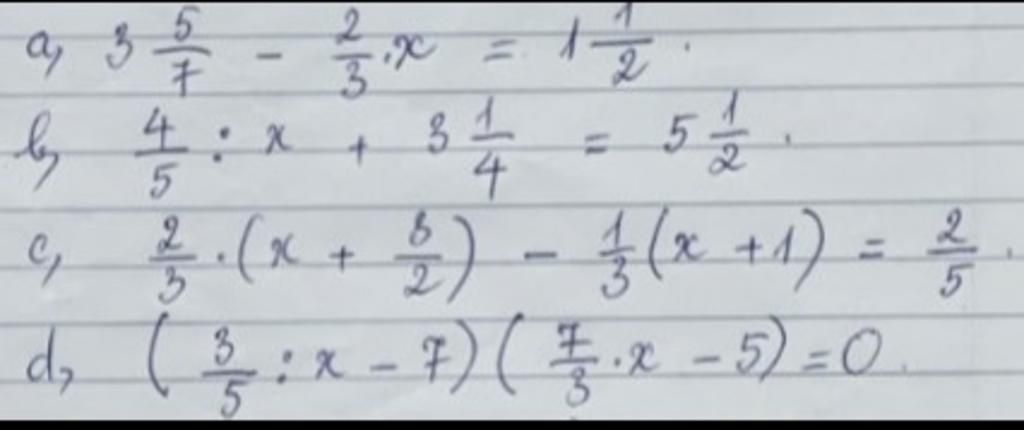 a, 3 5/7 - 2/3 . x = 1 1/2 .
b, 4/5 : x + 3 1/4 = 5 1/2 .
c, 2/3 . (x + 3/2) - 1/3 (x + 1) = 2/5 .
d, (3/5 : x - 7)(7/3 . x - 5) = 0 .